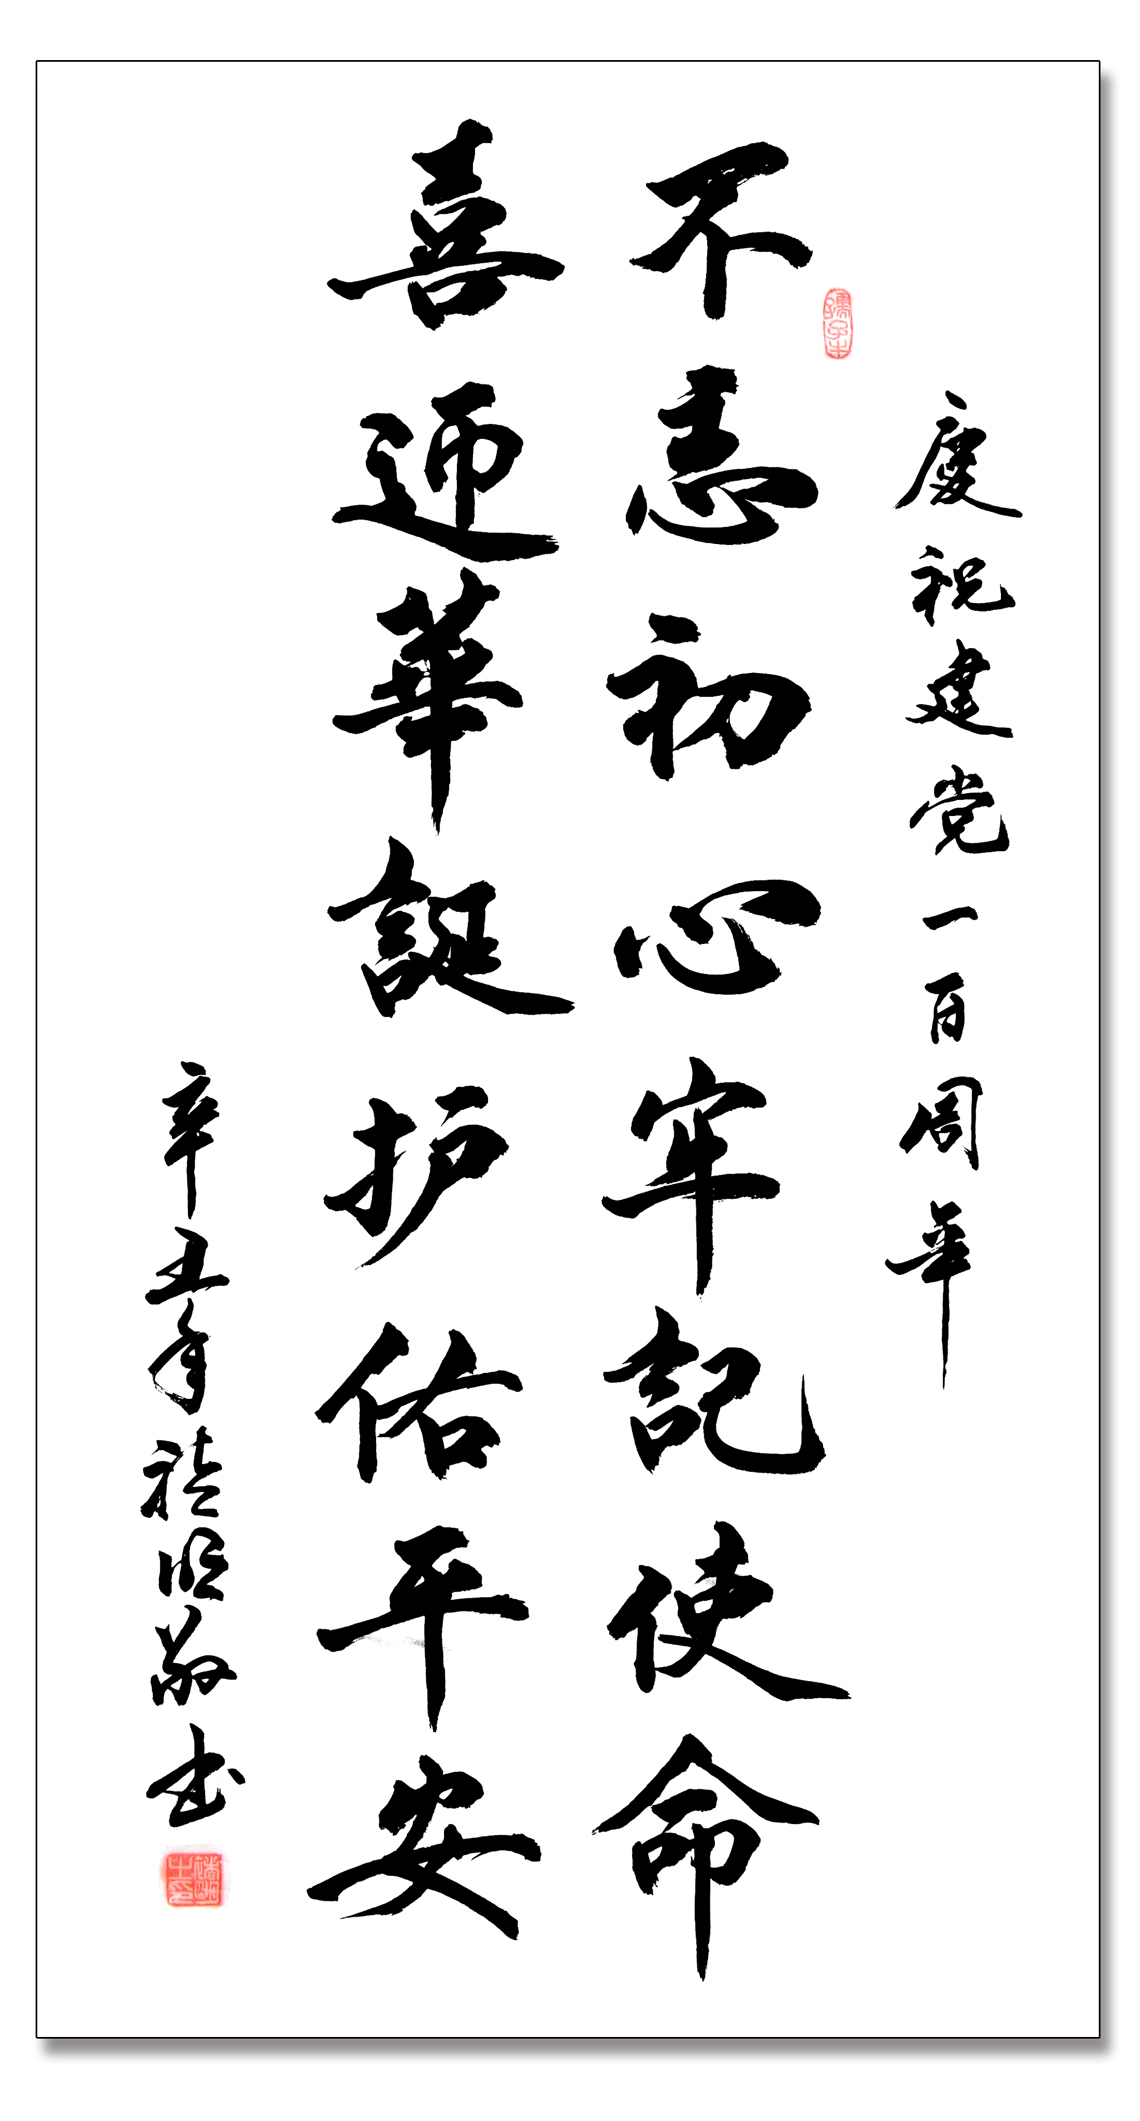 慶祝建党一百周年
不忘初心牢記使命
喜迎華誕护佑平安
辛丑年禧明敬书